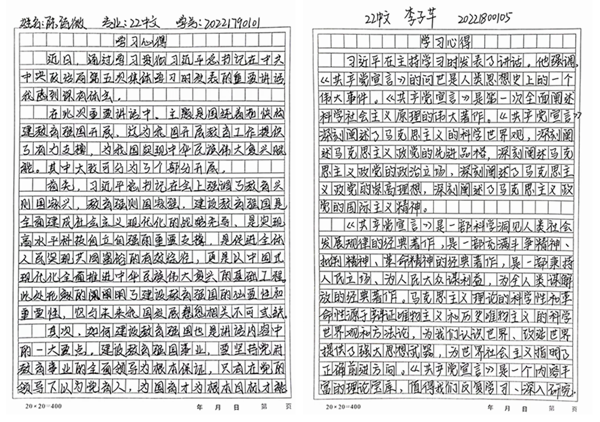 专业:22中文 学号:20221790101
学习心得
近日,通过学习贯彻习近平总书记在中共
中央政治局第五次集体学习时发表的重要讲话
在此次重要讲话中,主题是围绕着加快构
建教育强国开展,这为我国开展教育工作提供
了有力支撑,为我国实现中华民族伟大复兴赋
能。其中大致可分为了个部分开展。
首先,习近平总书记在会上强调了教育兴
则国家兴,教育强则国家强。建设教育强国是
全面建成社会主义现代化的战略先导,是实现
高水平科技自立自强的重要支撑,是促进全体
人民实现共同富裕的有效途径,更是以中国式
现代化全面推进中华民族伟大复兴的基础工程。
重要性,它与未来我国发展息息相关不可或缺
其次,如何建设教育强国也是讲话内容中
的一大重点。建设教育强国事业,要坚持党对
教育事业的全面领导为根本保证,只有在党的
领导下以为党育人,为国育才为根本目标才能
20×20=400 年 月 日 第 页
22中文 李子芊 20221800105
学习心得
习近平在主持学习时发表了讲话。他强调,
《共产党宣言》的问世是人类思想史上的一个
伟大事件。《共产党宣言》是第一次全面阐述
科学社会主义原理的伟大著作。《共产党宣言》
深刻阐述了马克思主义的科学世界观,深刻阐
述马克思主义政党的先进品格,深刻阐述马克
思主义政党的政治立场,深刻阐述了马克思主
义政党的崇高理想,深刻阐述了马克思主义政
党的国际主义精神。
《共产党宣言》是一部科学洞见人类社会
发展规律的经典著作,是一部充满斗争精神、
批判精神、革命精神的经典著作,是一部秉持
人民立场、为人民大众谋利益、为全人类谋解
放的经典著作。马克思主义理论的科学性和革
命性源于辩证唯物主义和历史唯物主义的科学
世界观和方法论,为我们认识世界、改造世界
提供了强大思想武器,为世界社会主义指明了
正确前进方向。《共产党宣言》是一个内容丰
富的理论宝库,值得我们反复学习、深入研究。
20×20=400 年 月 日 第 页